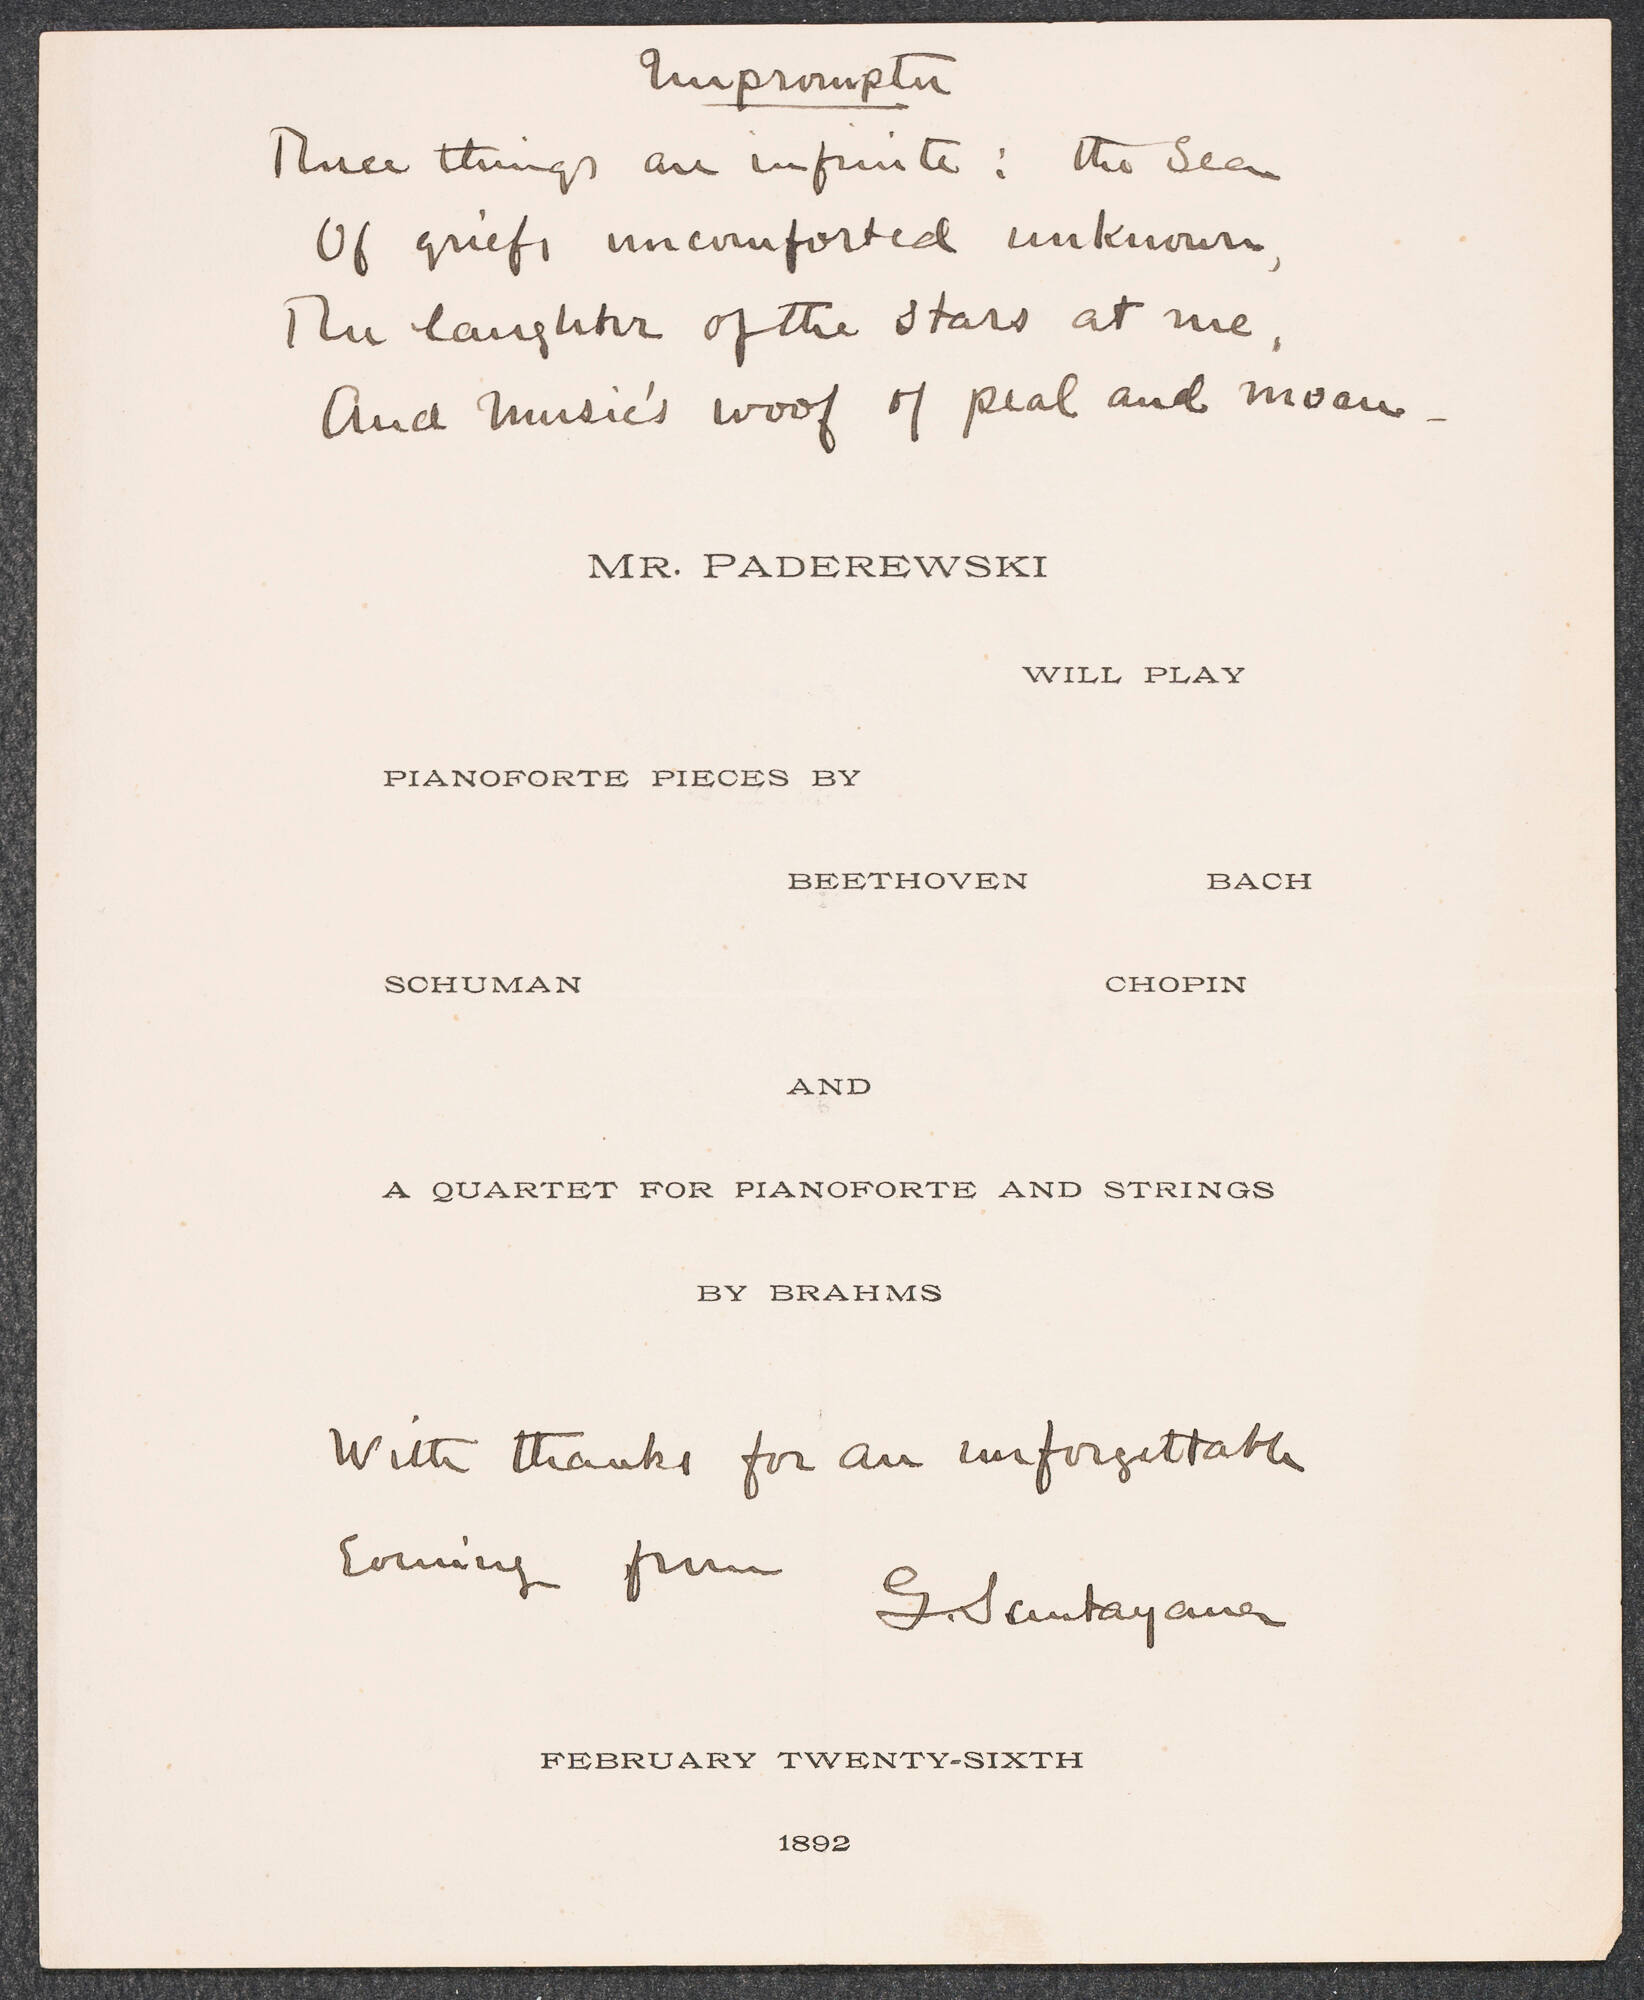 Impromptu
Three things are infinite: the Sea
Of griefs uncomforted unknown,
The laughter of the stars at me,
And Music's woof of peal and moan -
MR. PADEREWSKI
WILL PLAY
PIANOFORTE PIECES BY
BEETHOVEN BACH
SCHUMAN CHOPIN
AND
A QUARTET FOR PIANOFORTE AND STRINGS
BY BRAHMS
With thanks for an unforgettable
Evening from
G. Santayana
FEBRUARY TWENTY-SIXTH
1892